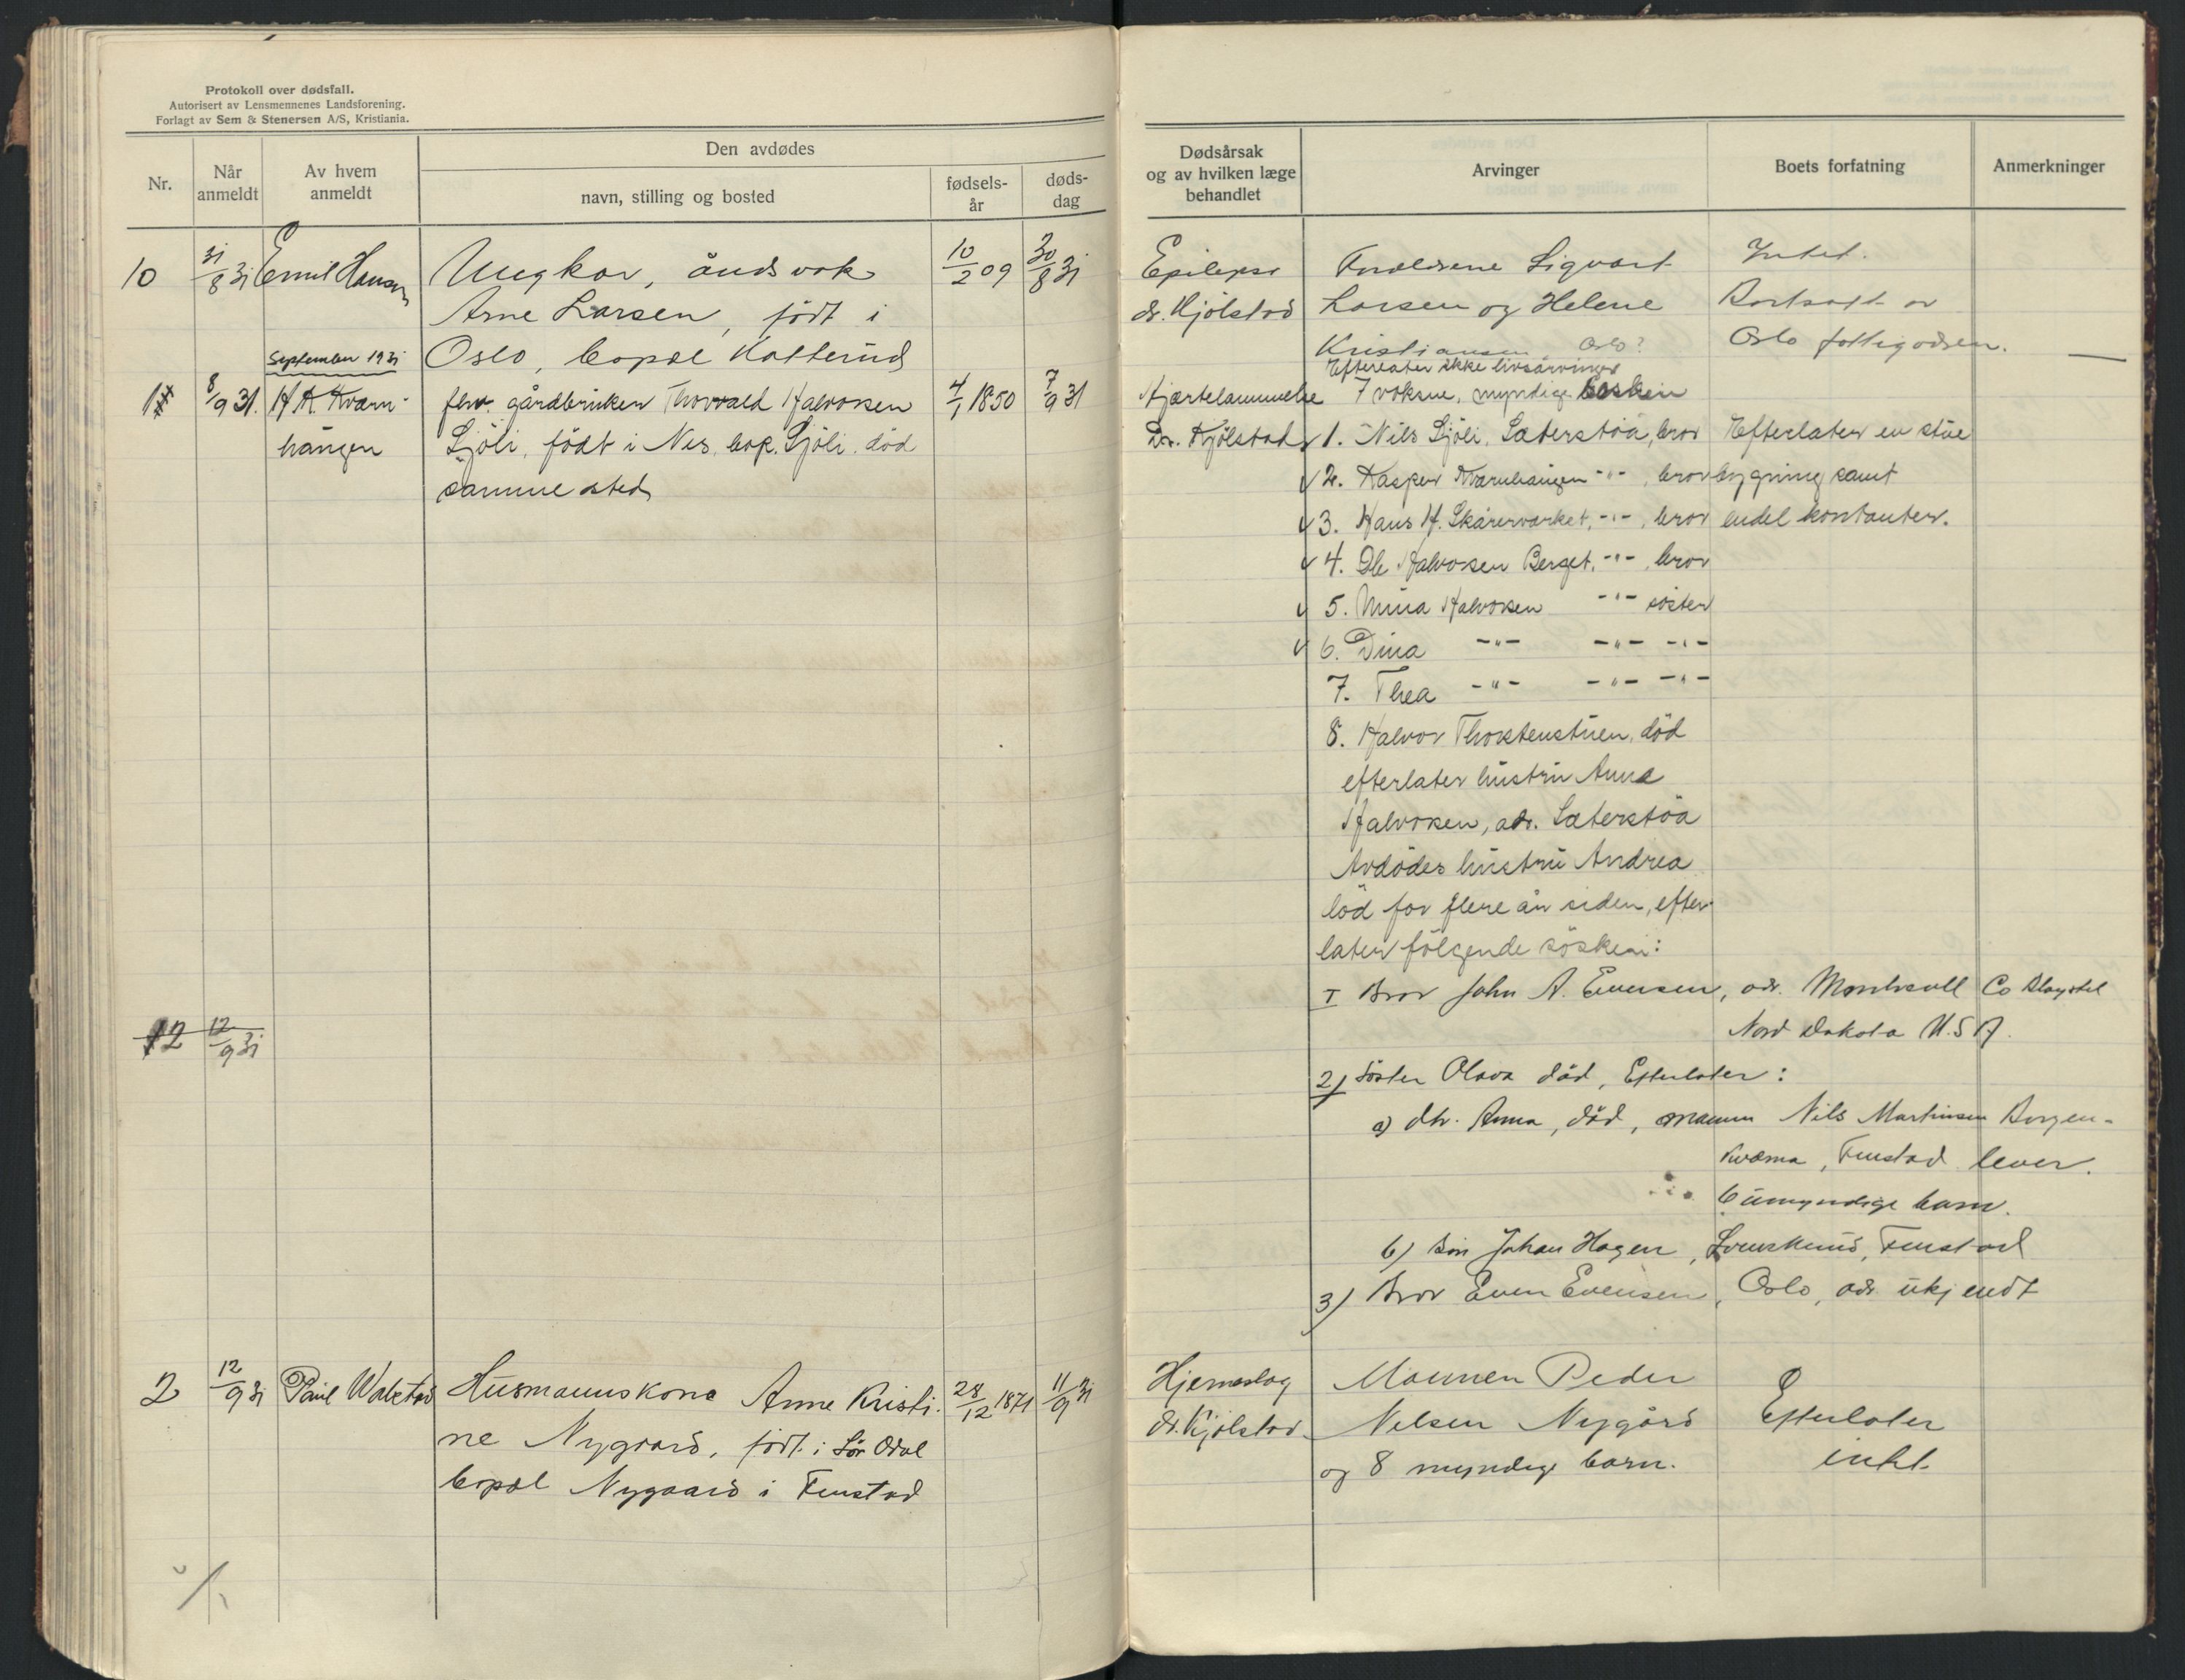 Protokoll over dødsfall.
Autorisert av Lensmennenes Landsforening.
Forlagt av Sem & Stenersen A/S, Kristiania.
Nr.
Når anmeldt
Av hvem anmeldt
Den avdødes
navn, stilling og bosted
fødsels-år
døds-dag
Dødsårsak og av hvilken læge behandlet
Arvinger
Boets forfatning
Anmerkninger
10 31/8 31 Emil Hansen Ungkar, åndsvak 10/2 09 30/8 31
Arne Larsen, født i
Oslo, bopæl Kolterud
Epilepsi
dr. Kjølstad
Foreldrene Sigvart
Larsen og Helene
Kristiansen, Oslo?
Intet.
Bortsatt av
Oslo fattigvæsen.
September 1931
1 8/9 31. H. K. Kværn-
hangen
fhv. gårdbruker Thorvald Halvorsen 4/1 1850 7/9 31
Sjöli, födt i Nes, bop. Sjöli. död
samme sted
Hjærtelammelse
Dr. Kjølstad
Efterlater ikke livsarvinger
7 voksne, myndige söskein
1. Nils Sjöli, Sæterstöa, bror
2. Kasper Kværnhangen -"-, bror
3. Hans H. Skårervarket, -"-, bror
4. Ole Halvorsen Berget, -"-, bror
5. Mina Halvorsen -"- söster
6. Dina -"- -"- -"-
7. Thea -"- -"- -"-
8. Halvor Thorstenstuen, död
efterlater hustru Anna
Halvorsen, adr. Sæterstöa
Avdödes hustru Andrea
död for flere år siden, efter-
later fölgende söskein:
Efterlater en stue
bygning samt
endel kontanter.
I Bror John A. Evensen, adr. Montreall Co
Nord Dakota U.S.A.
2) Söster Olava död, Efterlater:
a) dtr. Anna, död, mannen Nils Martinsen Borgen-
kværna, Fenstad lever.
6 umyndige barn.
b) Sön Johan Hagen, Svenskerud, Fenstad
3) Bror Even Evensen, Oslo, adr. ukjendt
12 12/9 31
2 12/9 31 Paul Walstad Husmannskone Anne Kristi- 28/12 1871 11/9 31
ne Nygaard, født i Sør Odal
bopæl Nygaard i Fenstad
Hjerneslag
dr. Kjølstad
Mannen Peder
Nilsen Nygård
og 8 myndige barn.
Efterlater
intet